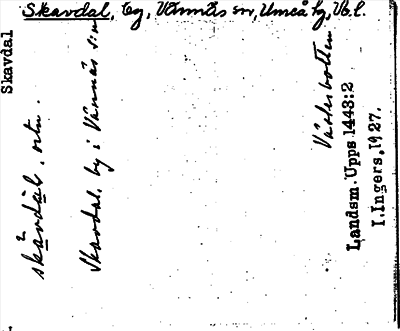 Skavdal, by, Vännäs sn, Umeå hg, Vb.l.
Skavdal
skàvdàl. ortn.
Skavdal. by i Vännäs s:n
Västerbotten
Landsm. Upps 1443:2
I. Ingers, 1927.